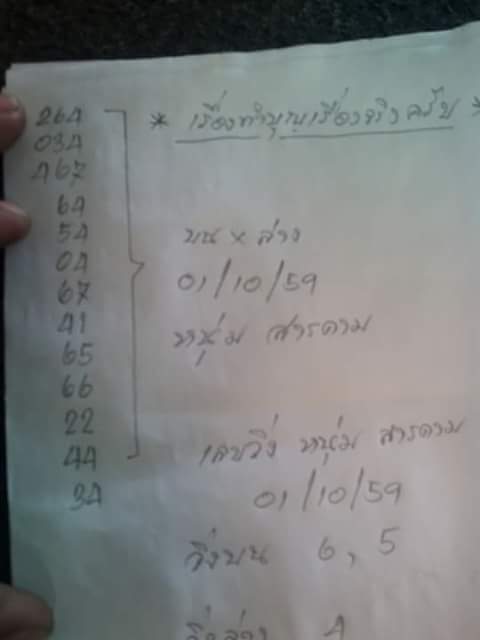 264
034
467
64
54
04
67
41
65
66
22
44
34
* เรื่องทำบุญเรื่องจริงครับ *
บน x ล่าง
01/10/59
หนุ่ม สารคาม
เลขวิ่ง หนุ่ม สารคาม
01/10/59
วิ่งบน 6, 5
วิ่งล่าง 4